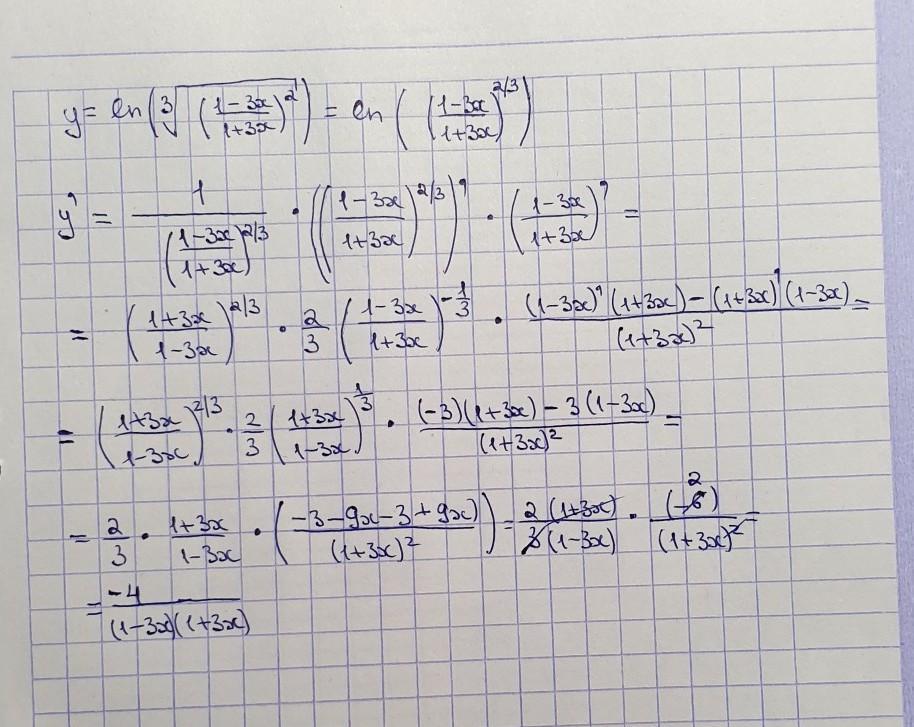 y = ln(∛((1-3x)/(1+3x))²) = ln(((1-3x)/(1+3x))^(2/3))
y' = 1/((1-3x)/(1+3x))^(2/3) · (((1-3x)/(1+3x))^(2/3))' · ((1-3x)/(1+3x))' =
= ((1+3x)/(1-3x))^(2/3) · 2/3 ((1-3x)/(1+3x))^(-1/3) · ((1-3x)'(1+3x) - (1+3x)'(1-3x))/(1+3x)² =
= ((1+3x)/(1-3x))^(2/3) · 2/3 ((1+3x)/(1-3x))^(1/3) · ((-3)(1+3x) - 3(1-3x))/(1+3x)² =
= 2/3 · (1+3x)/(1-3x) · ((-3-9x-3+9x)/(1+3x)²) = 2(1+3x)/3(1-3x) · (-6) 2/(1+3x)² =
= -4/(1-3x)(1+3x)